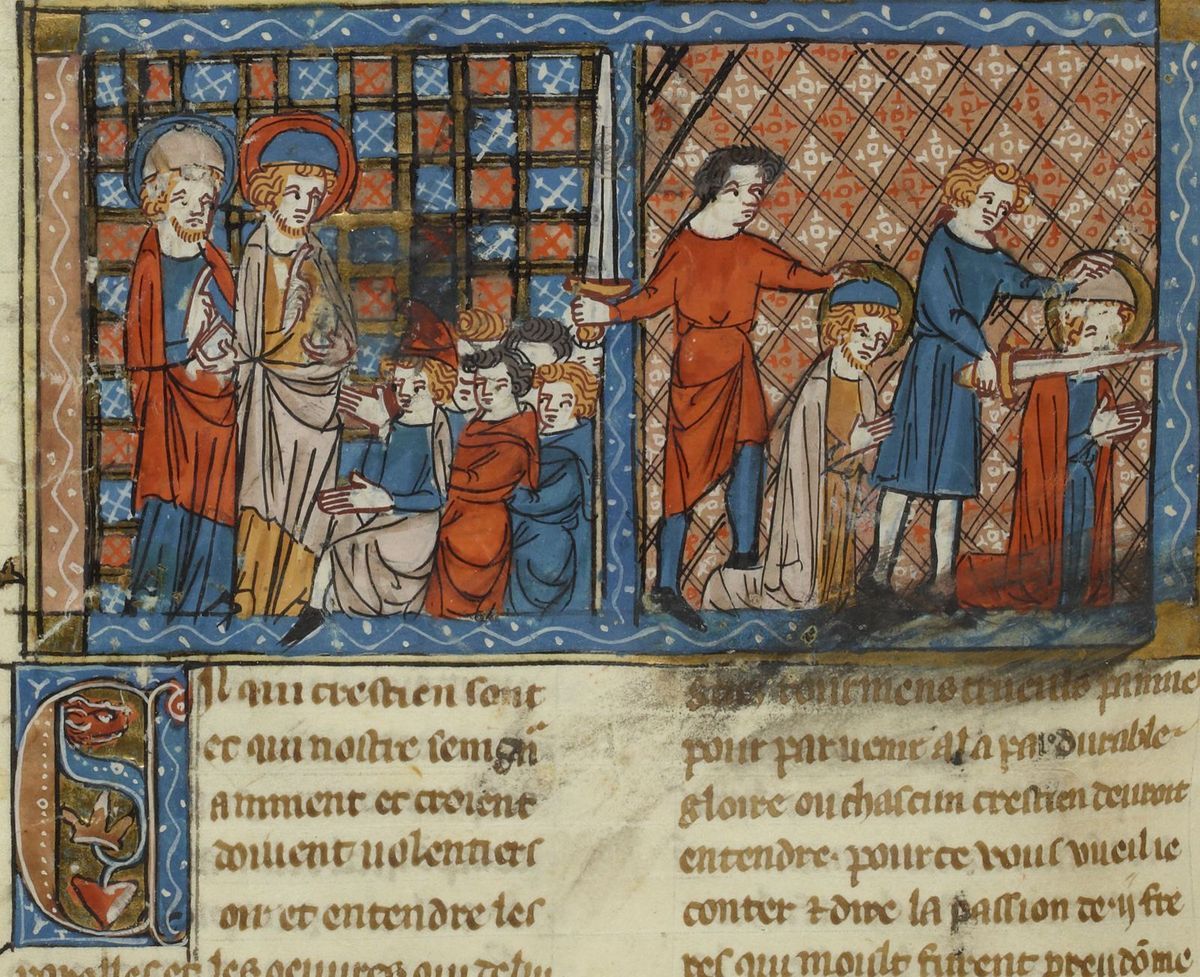 Cil qui crestien sont
et qui nostre seingnr
aimment et croient
doiuent uolentiers
oir et entendre les
parolles et les oeuures qui de lui
tourmens crueuls
pour paruenir a la pardurable
gloire ou chascun crestien deuroit
entendre. pour ce vous vueil ie
conter ⁊ dire la passion de .ij. fre
res qui moult furent preudōme